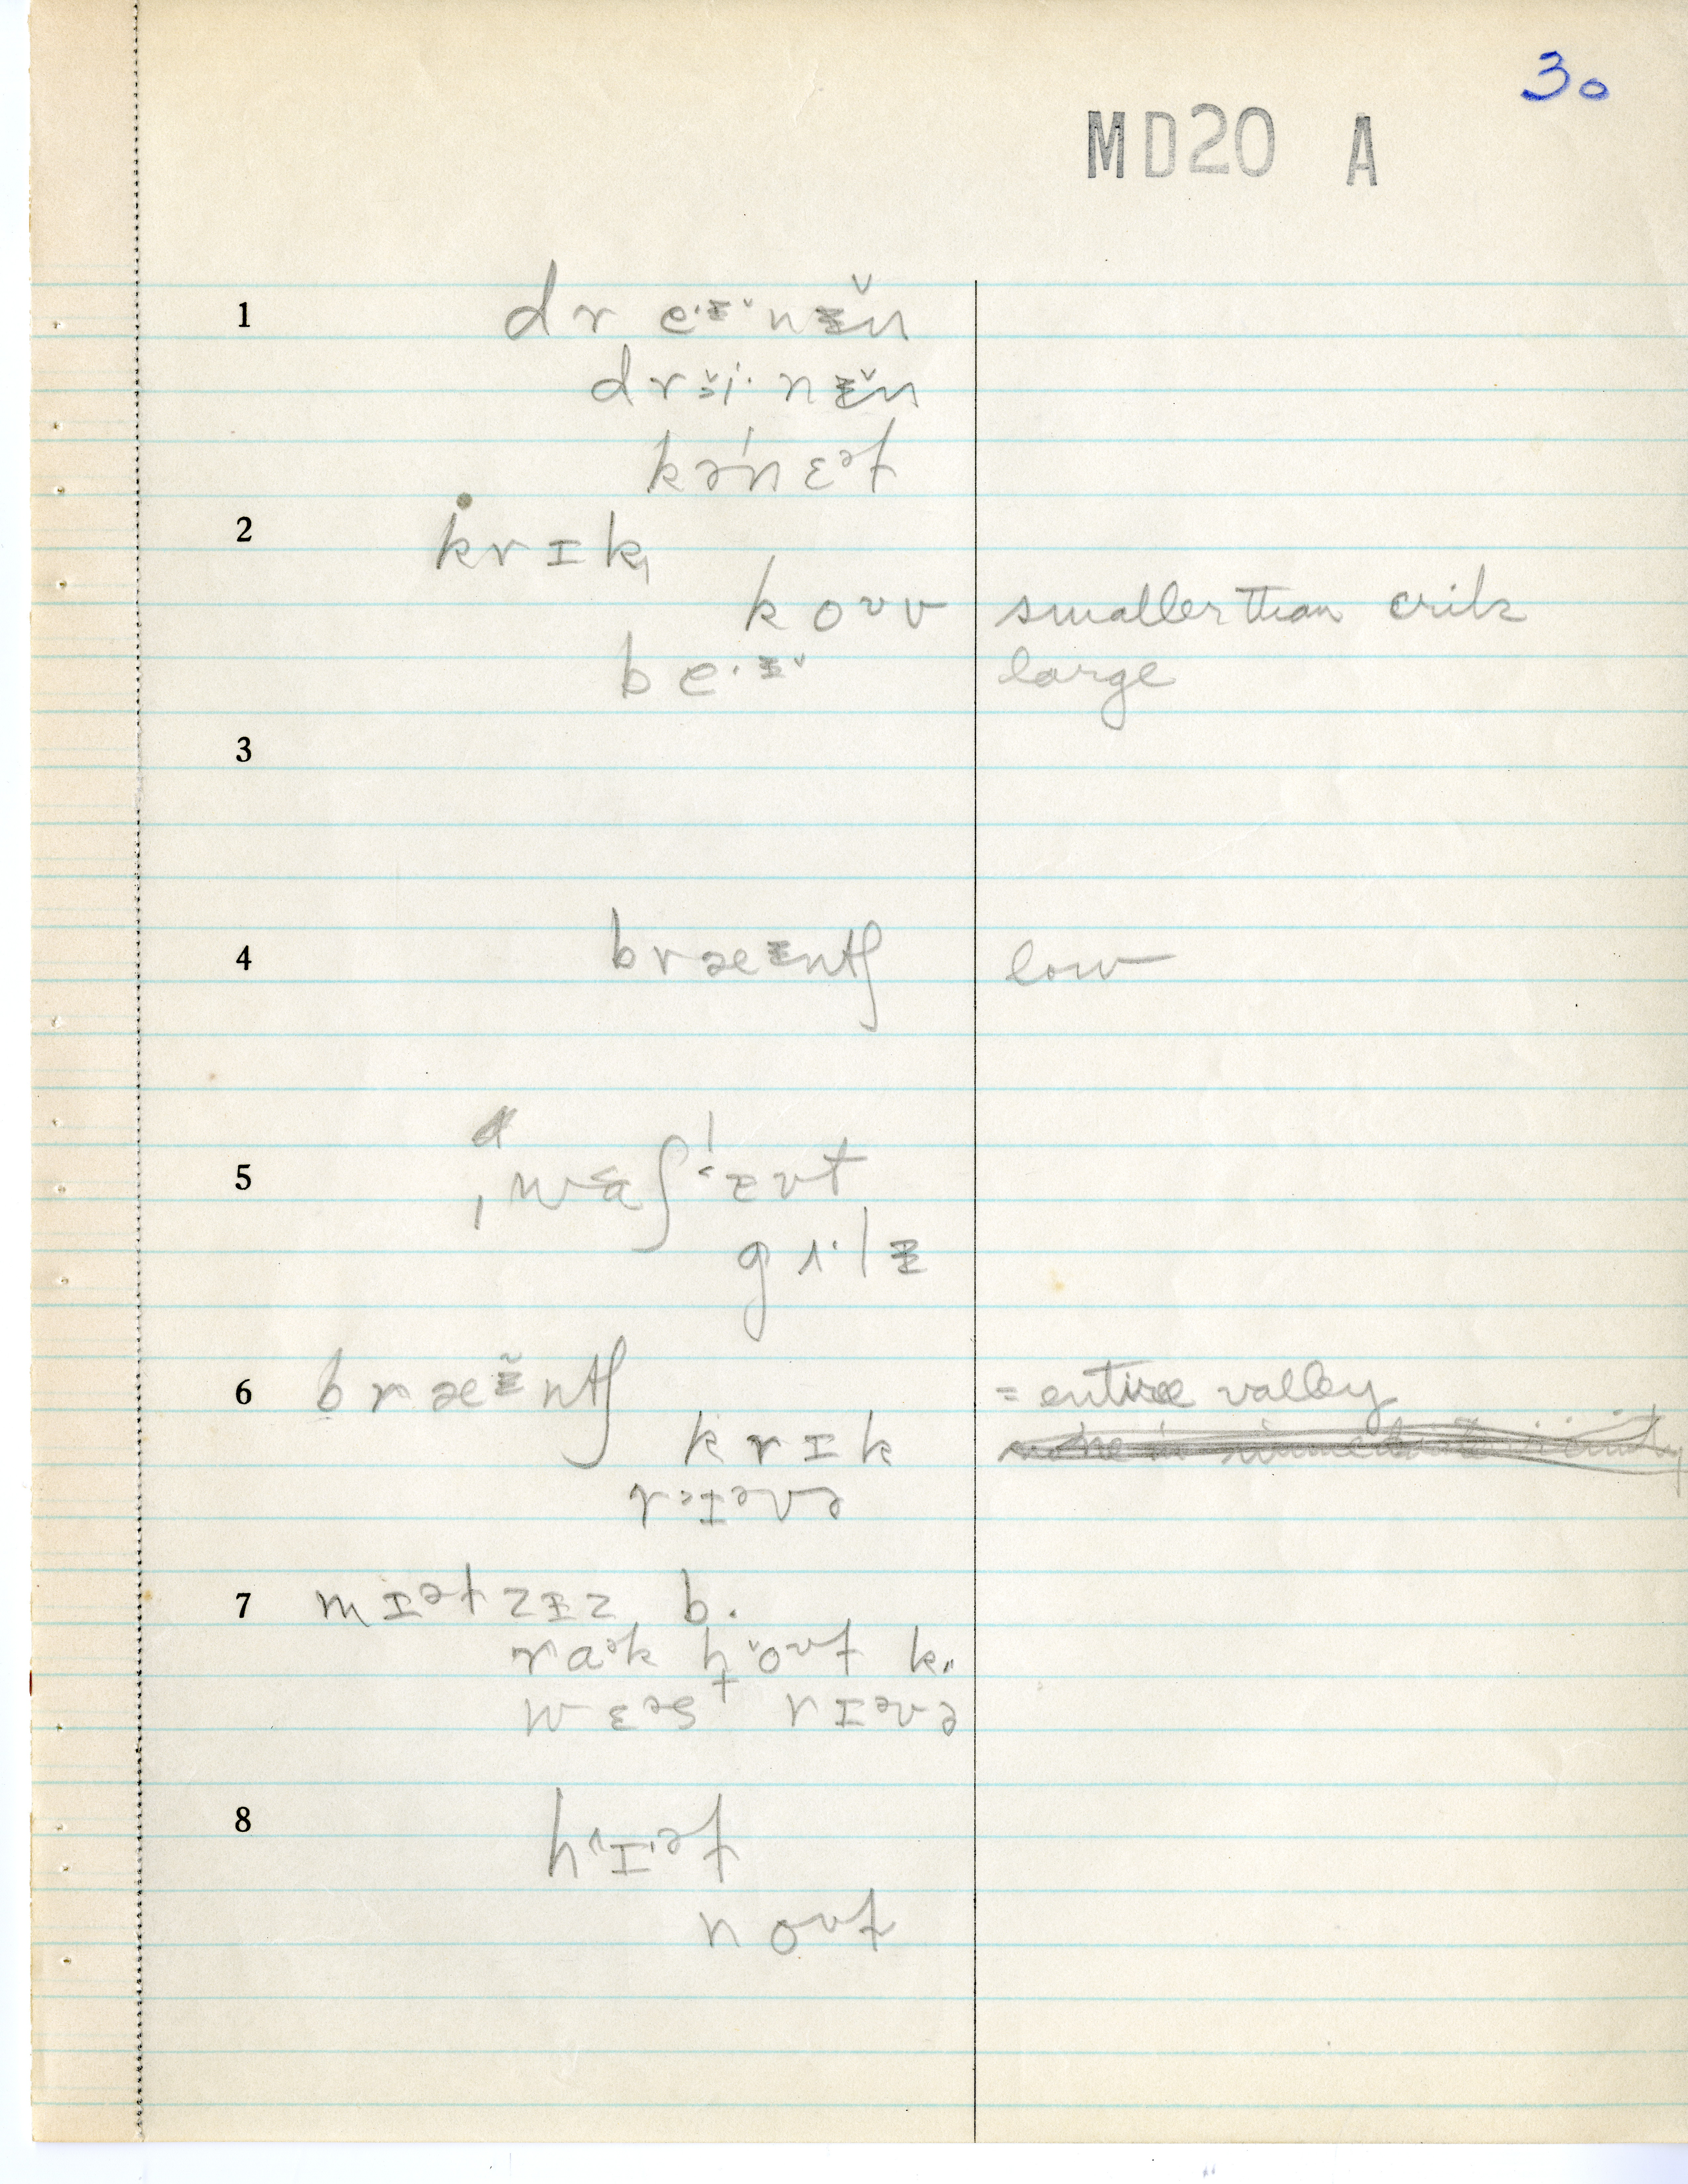 30
MD20 A
1 dr e·ɪ̵˅nɪ̵̆n
drɨi·nɪ̵̆n
kəˈnɛəɫ
2 krɪk
koʊv smaller than crik
be·ɪ̵˅ large
3
4 bræɪ̵ntʃ low
5 ˌwɑʃˈɛʊt
gʌ·lɪ̵
6 bræɪ̵̆ntʃ = entire valley
krɪk
rɪəvə
7 mɪəɫzɪ̵z b.
rɑk hoʊɫ k.
wɛəst rɪəvə
8 hɪəɫ
noʊɫ